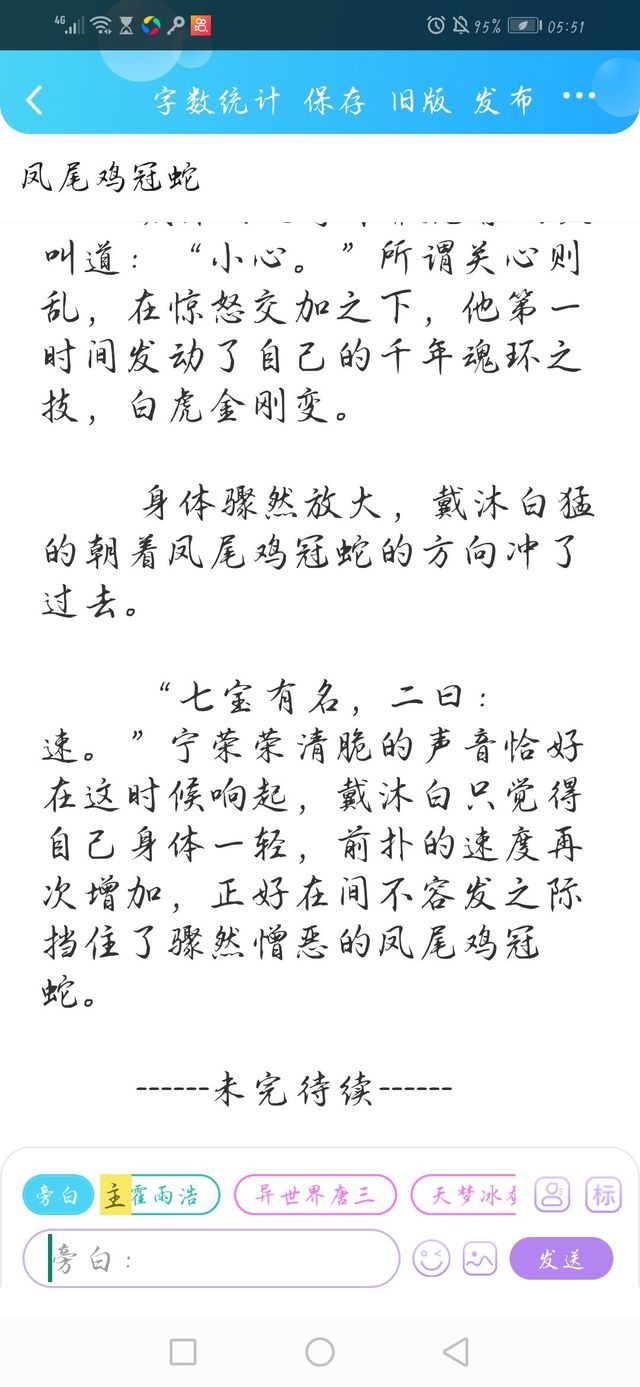 4G
95%
05:51
字数统计 保存 旧版 发布 ...
凤尾鸡冠蛇
叫道：“小心。”所谓关心则
乱，在惊怒交加之下，他第一
时间发动了自己的千年魂环之
技，白虎金刚变。
身体骤然放大，戴沐白猛
的朝着凤尾鸡冠蛇的方向冲了
过去。
“七宝有名，二曰：
速。”宁荣荣清脆的声音恰好
在这时候响起，戴沐白只觉得
自己身体一轻，前扑的速度再
次增加，正好在间不容发之际
挡住了骤然憎恶的凤尾鸡冠
蛇。
------未完待续------
旁白 主 霍雨浩 异世界唐三 天梦冰 标
旁白：
发送